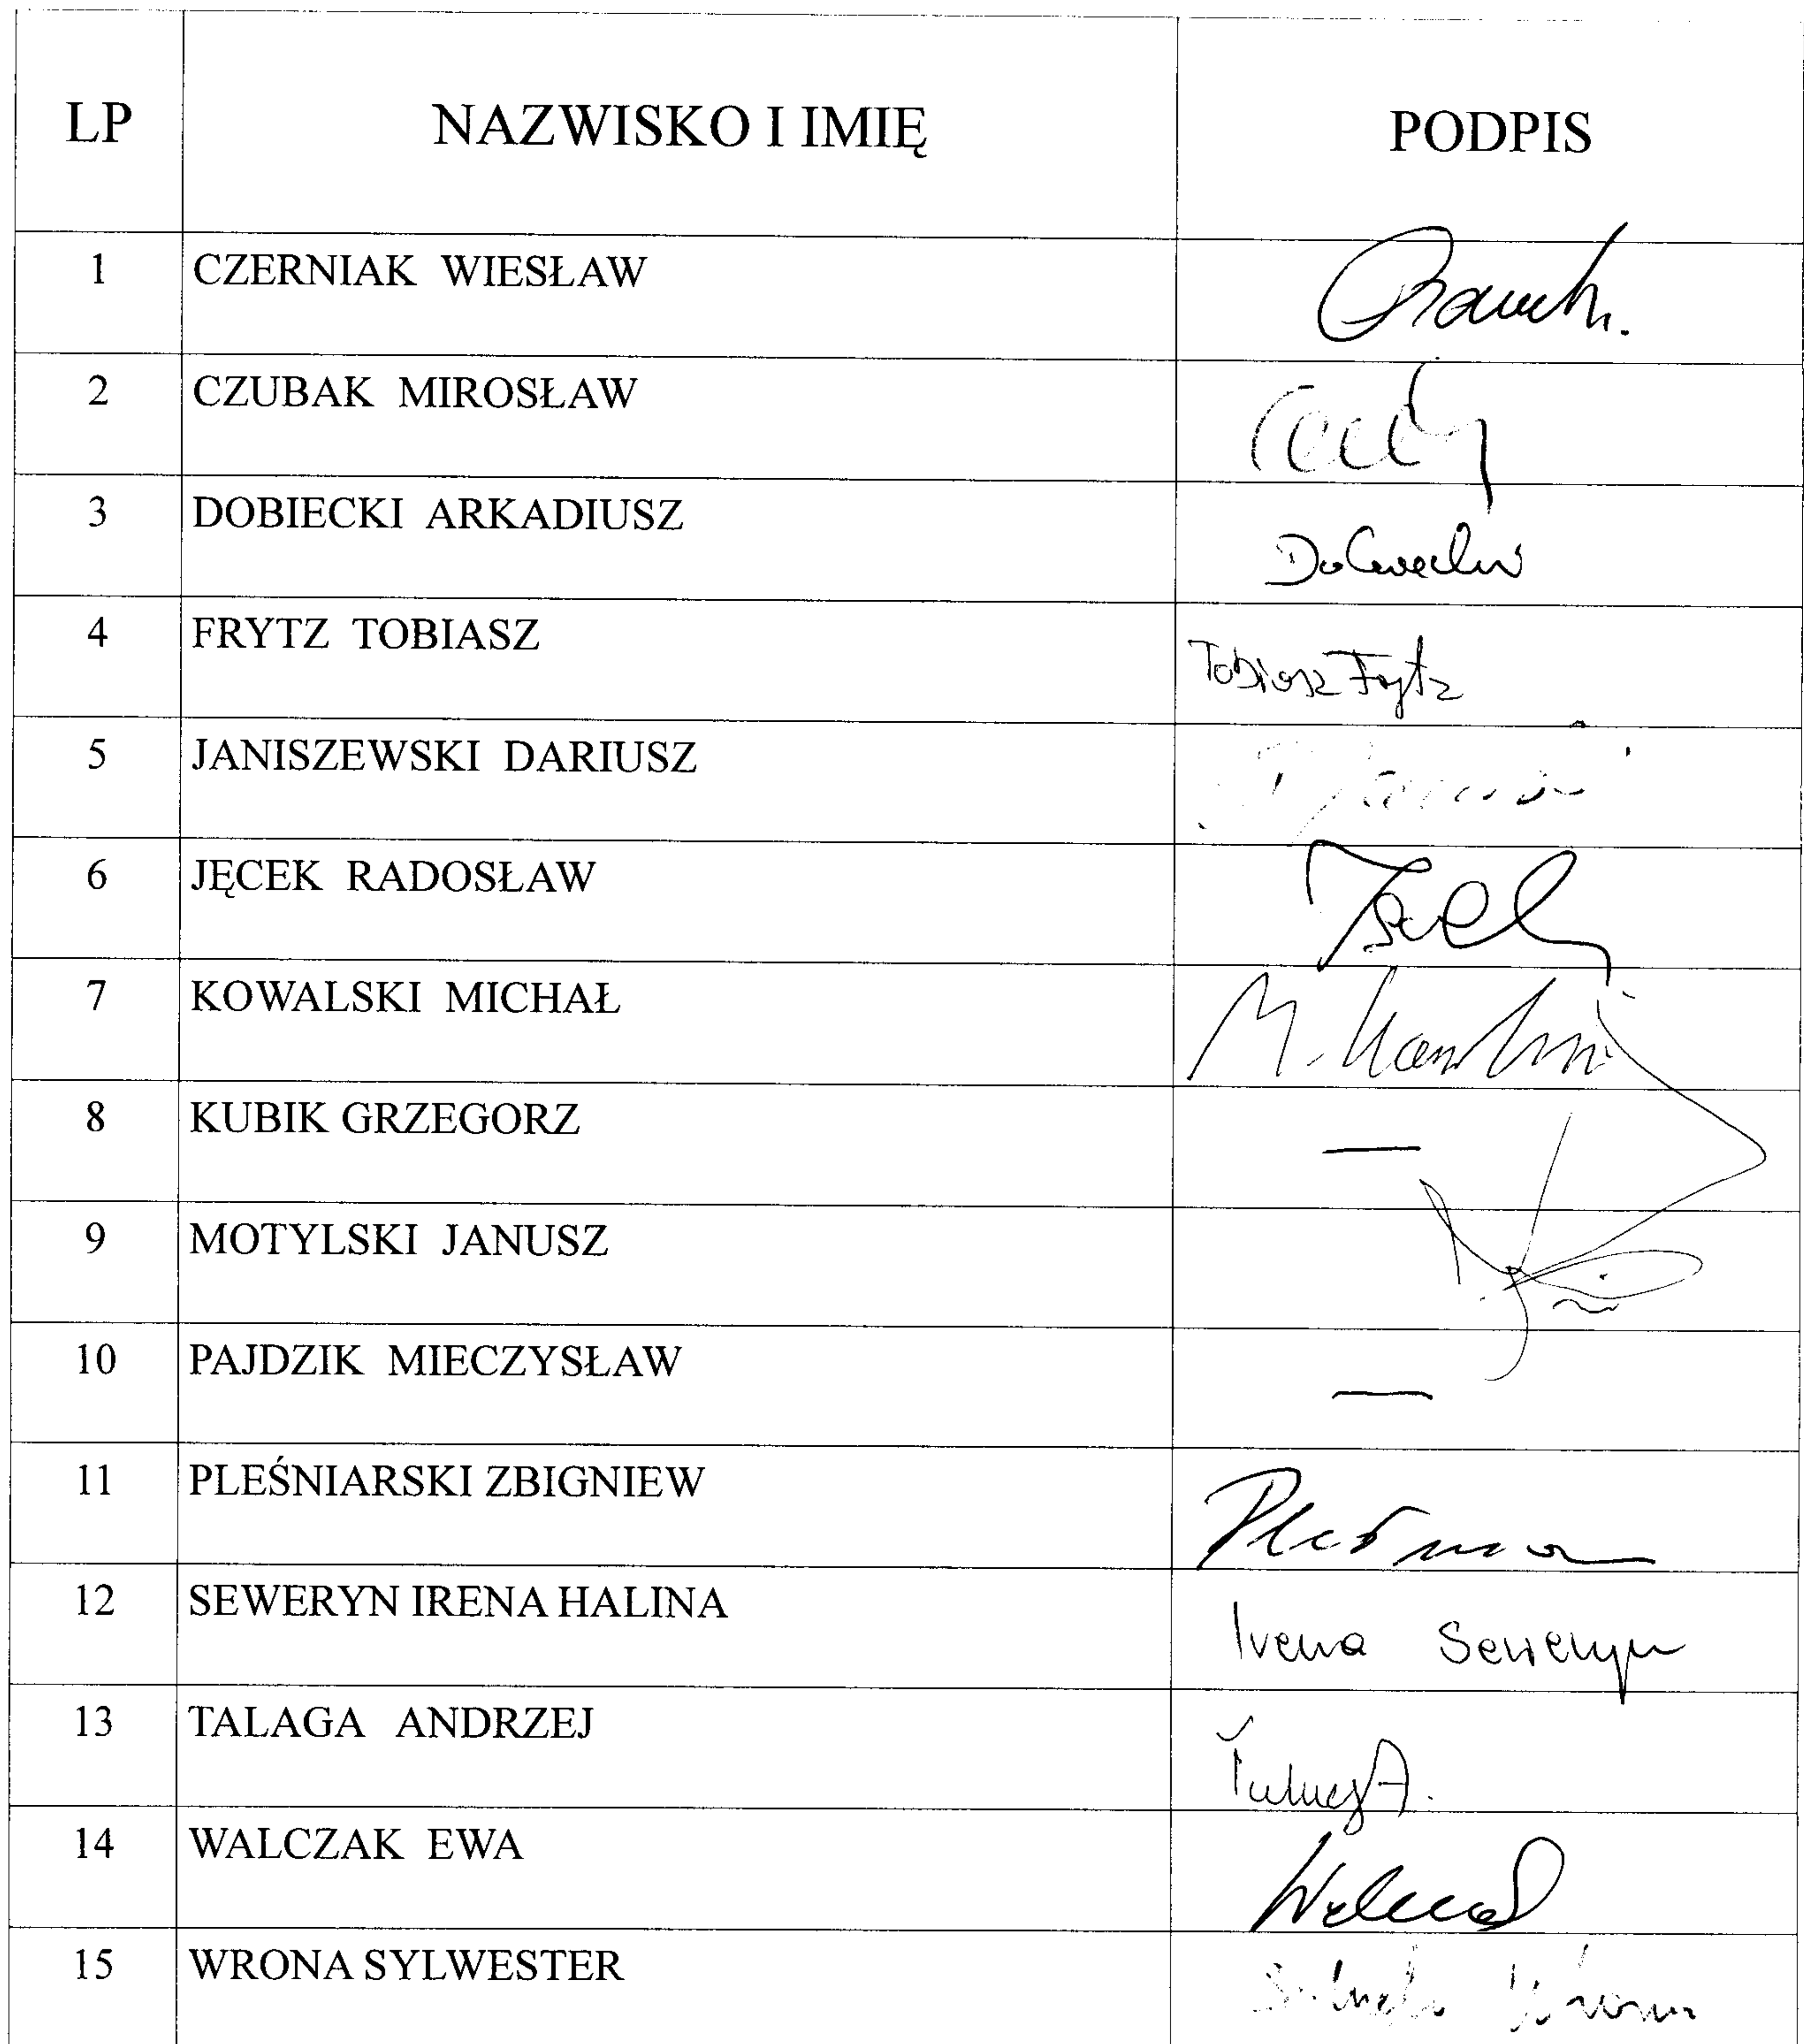 LP NAZWISKO I IMIĘ PODPIS
1 CZERNIAK WIESŁAW
2 CZUBAK MIROSŁAW
3 DOBIECKI ARKADIUSZ
4 FRYTZ TOBIASZ Tobiasz Frytz
5 JANISZEWSKI DARIUSZ
6 JĘCEK RADOSŁAW
7 KOWALSKI MICHAŁ M.
8 KUBIK GRZEGORZ —
9 MOTYLSKI JANUSZ
10 PAJDZIK MIECZYSŁAW —
11 PLEŚNIARSKI ZBIGNIEW
12 SEWERYN IRENA HALINA Irena Seweryn
13 TALAGA ANDRZEJ
14 WALCZAK EWA
15 WRONA SYLWESTER